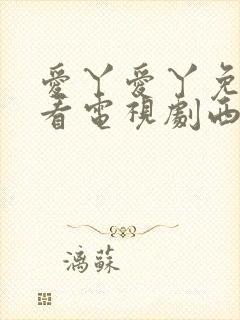 愛丫愛丫免
看電視劇西
漓蘇